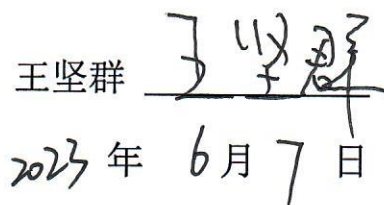 王坚群 王坚群
2023 年 6 月 7 日